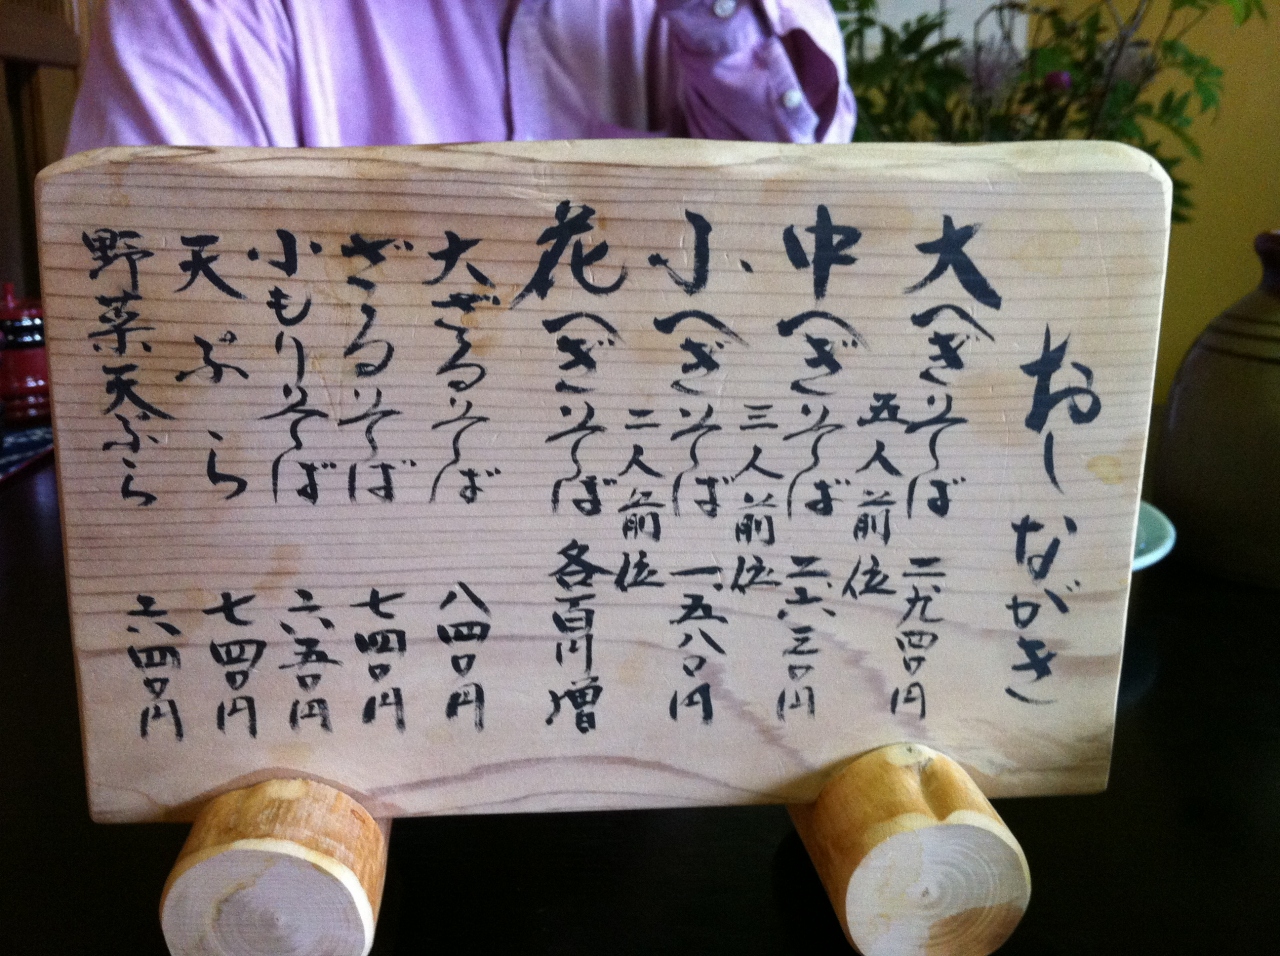 おしながき
大へぎそば 二、九四〇円
五人前位
中へぎそば 二、六三〇円
三人前位
小へぎそば 一、五八〇円
二人前位
花へぎそば 各百円増
大ざるそば 八四〇円
ざるそば 七四〇円
小もりそば 六五〇円
天ぷら 七四〇円
野菜天ぷら 六四〇円